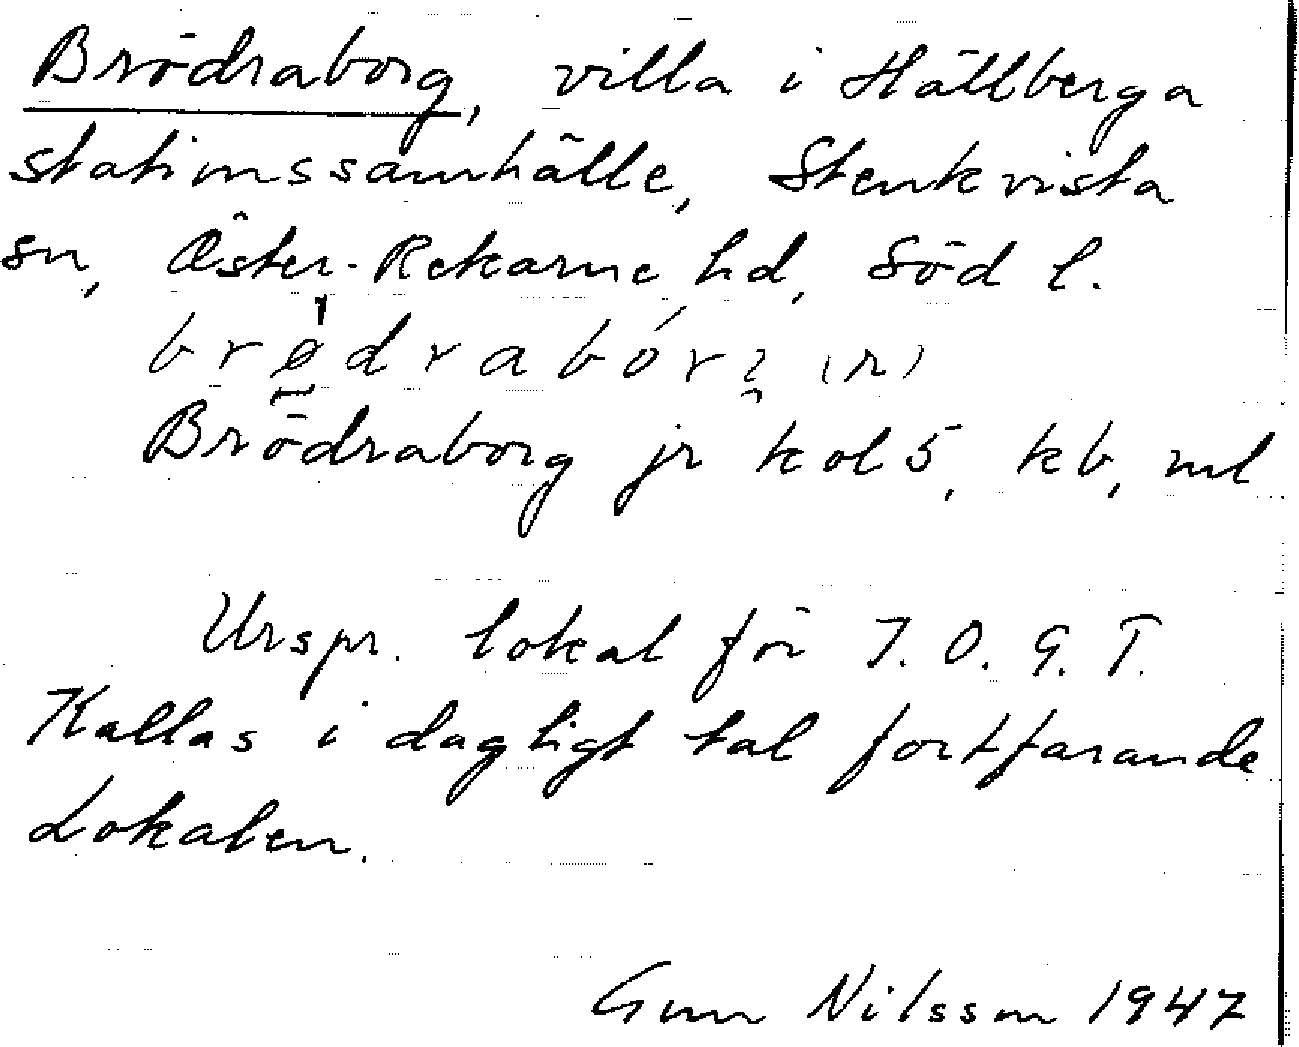 Brödraborg, villa i Hällberga
stationssamhälle, Stenkvista
sn, Öster-Rekarne hd, Söd l.
Brödraborg jr kol 5, kb, ml
Urspr. lokal för I. O. G. T.
Kallas i dagligt tal fortfarande
Lokalen.
Gun Nilsson 1947